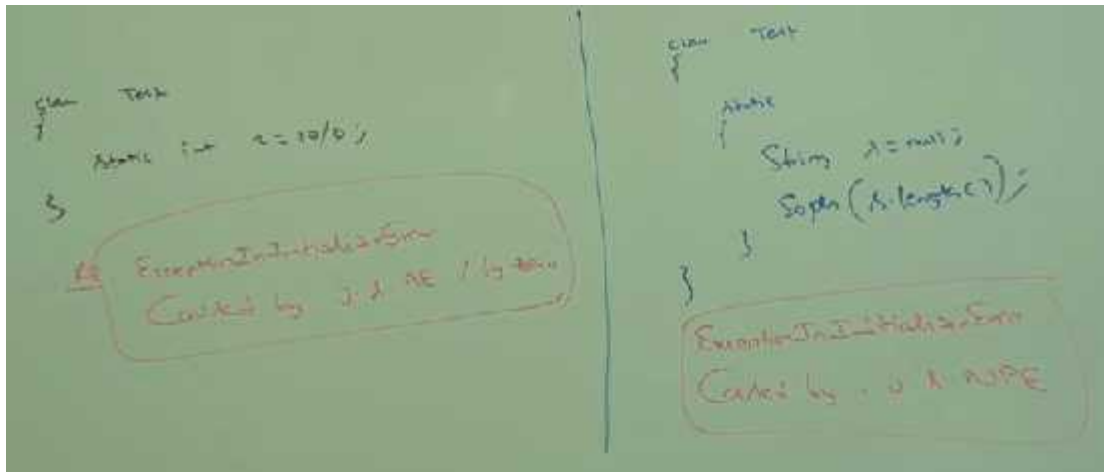 class Test
{
static int x=10/0;
}
RE ExceptionInInitializerError
Caused by j.l.AE / by zero
class Test
{
static
{
String s=null;
Sopln(s.length());
}
}
ExceptionInInitializerError
Caused by . j l NPE